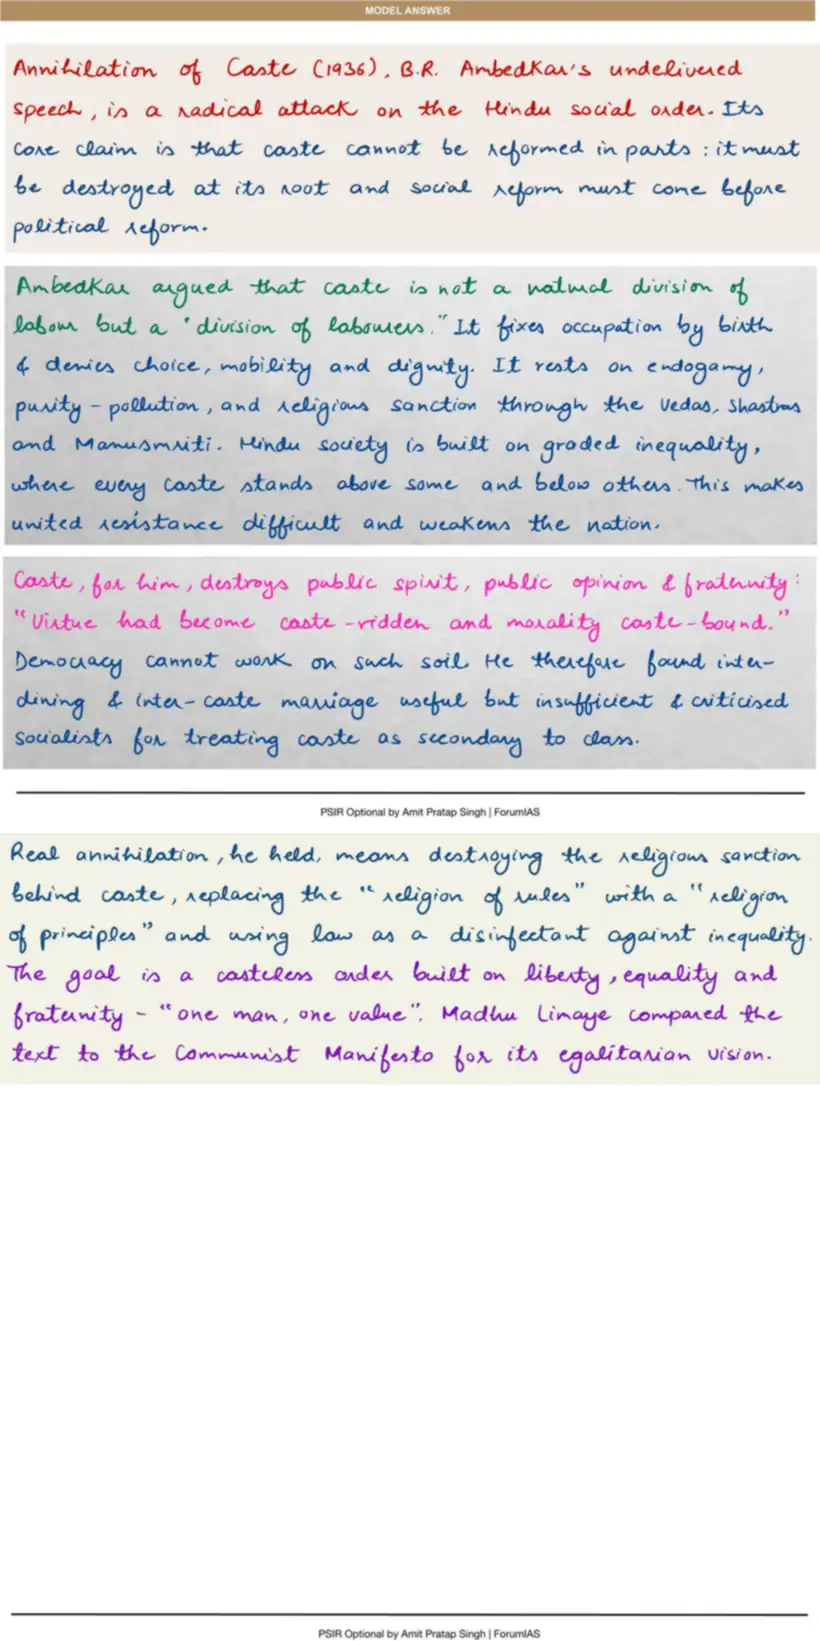 MODEL ANSWER
Annihilation of Caste (1936), B.R. Ambedkar's undelivered
speech, is a radical attack on the Hindu social order. Its
core claim is that caste cannot be reformed in parts : it must
be destroyed at its root and social reform must come before
political reform.
Ambedkar argued that caste is not a natural division of
labour but a 'division of labourers." It fixes occupation by birth
& denies choice, mobility and dignity. It rests on endogamy,
purity - pollution, and religious sanction through the Vedas, Shastras
and Manusmriti. Hindu society is built on graded inequality,
where every caste stands above some and below others. This makes
united resistance difficult and weakens the nation.
Caste, for him, destroys public spirit, public opinion & fraternity :
"Virtue had become caste-ridden and morality caste-bound."
Democracy cannot work on such soil. He therefore found inter-
dining & inter-caste marriage useful but insufficient & criticised
socialists for treating caste as secondary to class.
PSIR Optional by Amit Pratap Singh | ForumIAS
Real annihilation, he held, means destroying the religious sanction
behind caste, replacing the "religion of rules" with a "religion
of principles" and using law as a disinfectant against inequality.
The goal is a casteless order built on liberty, equality and
fraternity - "one man, one value". Madhu Limaye compared the
text to the Communist Manifesto for its egalitarian vision.
PSIR Optional by Amit Pratap Singh | ForumIAS